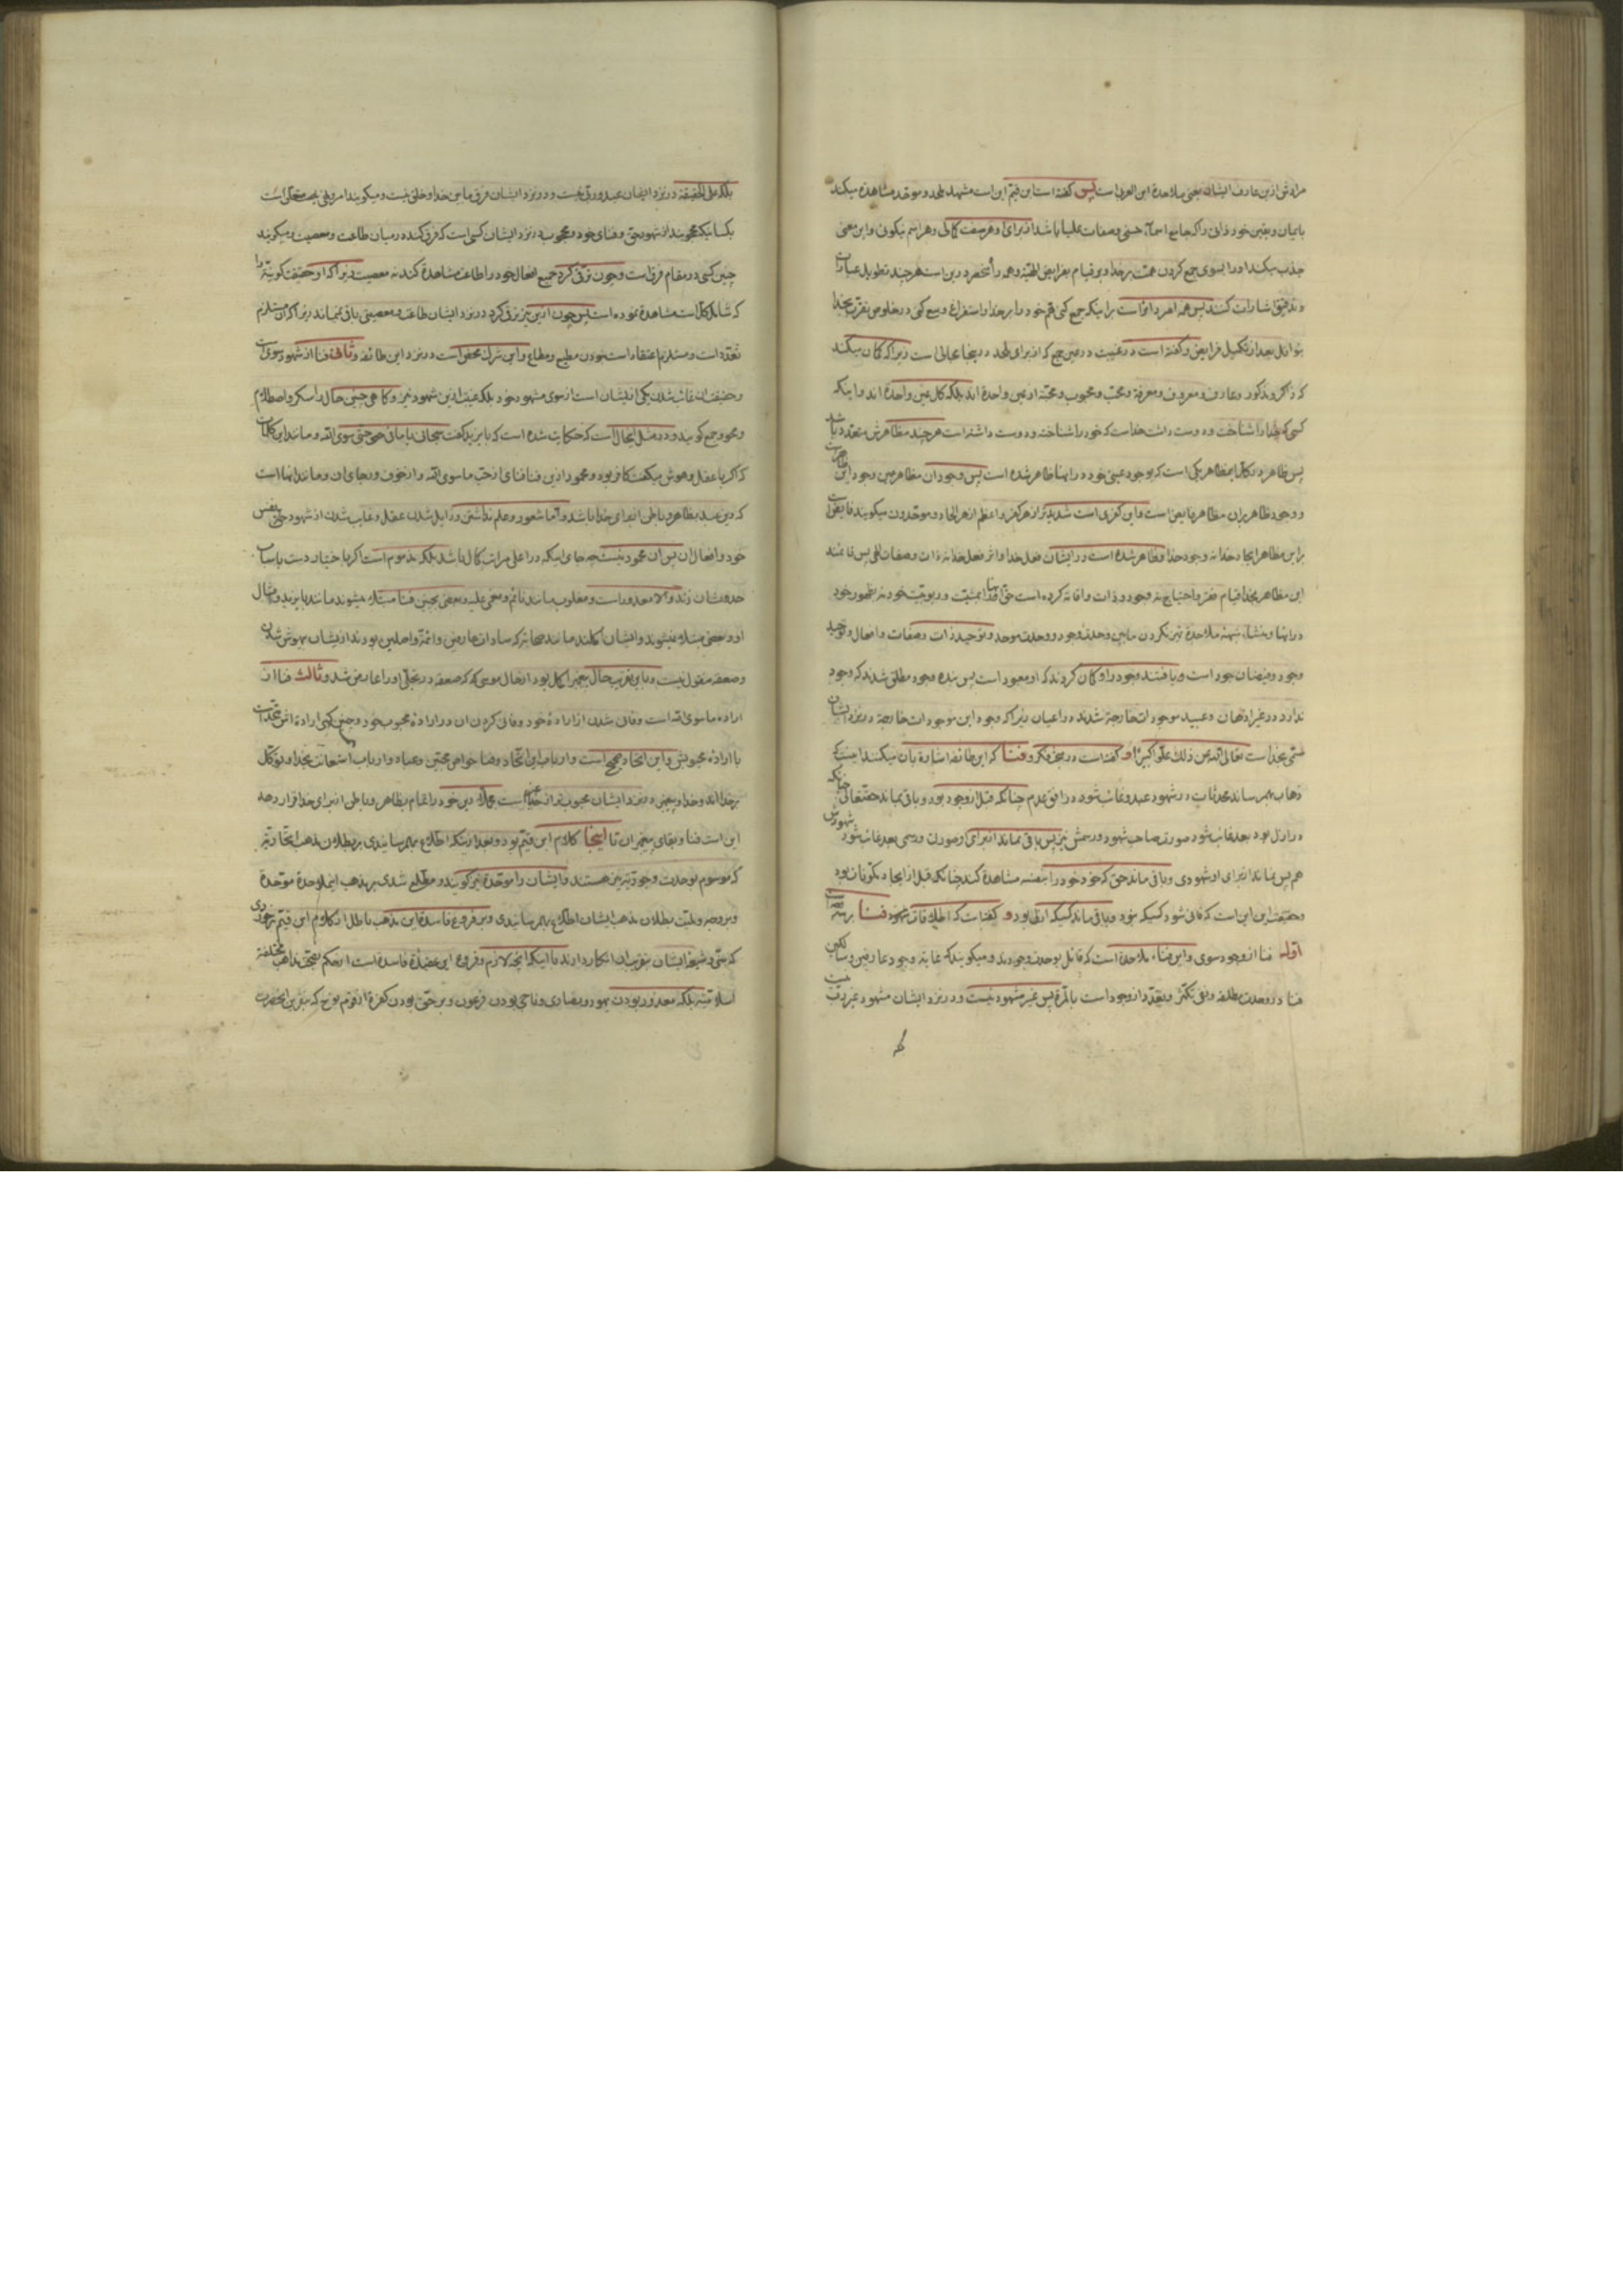 مرادش ازین عارف ایشان یعنی ملاحدهٔ ابن العربی است پس گفته است ابن قیم این است مشهد ملحد و موحد مشاهده میکند
بایمان و یقین خود ذاتی را که جامع اسماء حسنی و صفات علیا باشد از برای او هر صفت کمالی و هر اسم نیکوئی و این معنی
جذب میکند او را بسوی جمع کردن همت بر خدا و بر قیام بفرایض الهیه و همه راه منحصر درین است هر چند تطویل عبارات
و تدقیق اشارات کنند پس همه امر دائر است براینکه جمع کنی هم خود را بر خدا و استفراغ وسع کنی در خلوص تقرب بخدا
بنوافل بعد از تکمیل فرایض و گفته است در غیبت در عین جمع که از برای ملحد درینجا مجالی است زیرا که گمان میکند
که ذاکر و مذکور و عارف و معروف و معرفة و محب و محبوب و محبة از عین واحدة اند بلکه کل عین واحدة اند و اینکه
کسی که خدا را شناخت و دوست داشت خداست که خود را شناخته و دوست داشته است هر چند مظاهرش متعدد باشد
پس ظاهر در کل مظاهر یکی است که بوجود عینی خود در اینها ظاهر شده است پس وجود ان مظاهر عین وجود این ظاهر است
و وجود ظاهر بران مظاهر فایض است و این کفری است شدیدتر از هر کفر و اعظم از هر الحاد و موحدون میکویند فایض
براین مظاهر ایجاد خدا نه وجود خدا و ظاهر شده است در ایشان فعل خدا و اثر فعل خدا نه ذات و صفات الهی پس
این مظاهر بخدا قیام فقر و احتیاج نه وجود و ذات و اقامه کرده است حق انها را بمشیت و ربوبیت خود نه بظهور خود
در اینها و منشأ شبهه ملاحدة تمیز نکردن مابین وحدت وجود و وحدت موجد و توحید ذات و صفات و افعال و توحید
وجود و فیضان جود است و یافتند وجود را و گمان کردند که او معبود است پس بنده وجود مطلق شدند که وجود
ندارد در غیر اذهان و عبید موجودات خارجة شدند در اعیان زیرا که وجود این موجودات خارجة در نزد ایشان
مسمی بخداست تعالی الله عن ذلک علوا کبیرا و گفته است در بحث دیگر و فنا که این طائفه اشارة بان میکنند اینست که
ذهاب بهم رساند محدثات در شهود عبد و غائب شود در افق عدم چنانکه قبل از وجود بود و باقی بماند حقتعالی چنانکه
در ازل بود بعد غائب شود صورت صاحب شهود و رسمش نیز پس باقی نماند از برای او صورت و رسمی بعد غائب شود شهودش
هم پس نماند از برای او شهودی و باقی ماند حق که خود خود را بنفسه مشاهدة کند چنانکه قبل از ایجاد مکونات بود
و حقیقت این این است که فانی شود کسیکه نبود و باقی ماند کسیکه ازلی بود و گفته است که اطلاق فنا نمود فنا بر سه معنی است
اوله فنا از وجود سوی و این فناء ملاحدة است که قائل بوحدت وجودند و میکویند که غایة وجود عارفین و سالکین
فنا در وحدت مطلقه و نفی تکثر و تعدد از وجود است بالمرة پس غیر مشهود نیست و در نزد ایشان مشهود
بلکه علی الحقیقه در نزد ایشان عبد و رب نیست و در نزد ایشان فرق مابین خدا و خلق نیست و میکویند امر و نهی بجهت است
بکسانیکه محجوبند از شهود حق و فنای خود و محجوب در نزد ایشان کسی است که فرق کند در میان طاعت و معصیت و میکویند
چنین کسی در مقام فرق است و چون ترقی کرد جمیع افعال خود را طاعت مشاهدة کند نه معصیت زیرا که او حقیقت کونیة را
که شامل کل است مشاهدة نموده است پس چون ازین نیز ترقی کرد در نزد ایشان طاعت و معصیتی باقی نمیماند زیرا که ان مستلزم
تعدد است و مستلزم اعتقاد است بودن مطیع و مطاع و این شرک محض است در نزد این طائفه و ثانی فنا از شهود سوی است
و حقیقت ان غائب شدن یکی از ایشان است از سوی مشهود خود بلکه غیبت از این شهود نیز و گاهی چنین حال را سکر و اصطلام
و محو و جمع کویند و در مثل اینحال است که حکایت شده است که بایزید گفت سبحانی یا ما فی جبتی سوی الله و مانند این کلمات
که اگر با عقل و هوش میکفت کافر بود و محمود ازین فنا فنای از حب ما سوی الله و از خوف و رجای ان و مانند انها است
که دین عبد بظاهر و باطن از برای خدا باشد و اما شعور و علم نداشتن و زایل شدن عقل و غایب شدن از شهود حتی نفس
خود و افعال ان پس ان محمود نیست چه جای اینکه در اعلی مراتب کمال باشد بلکه مذموم است اگر باختیار دست باسباب
حدوثشان زند و الا معذور است و مغلوب مانند نائم و مغمی علیه و بعضی بچنین فنا مبتلا میشوند مانند بایزید و امثال
او و بعضی مبتلا نمیشوند و ایشان کاملند مانند صحابه که سادات عارفین و ائمه واصلین بودند از ایشان بیهوش شدن
و صعقه منقول نیست و باین تقریب حال پیغمبر اکمل بود از حال موسی که صعقه در تجلی او را عارض شد و ثالث فنا از
اراده ما سوی الله است و فانی شدن از ارادهٔ خود و فانی کردن ان در ارادهٔ محبوب خود و چنین کسی ارادة اش متحد است
با ارادهٔ محبوبش و این اتحاد صحیح است و ارباب این اتحاد و فنا خواص محبین و عباد و ارباب استعانت بخدا و توکل
بر خدا اند و خدا و پیغمبر در نزد ایشان محبوب تر از غیر است دین خود را تمام بظاهر و باطن از برای خدا قرار دهد
این است فنا و بقای پیغمبران تا اینجا کلام ابن قیم بود و بعد از اینکه اطلاع بهم رسانیدی بر بطلان مذهب اتحادیه
که موسوم بوحدت وجودیه نیز هستند و ایشان را موحدة نیز کویند و مطلع شدی بر مذهب این ملاحدة موحدة
و بر وجه و علت بطلان مذهب ایشان اطلاع بهم رسانیدی و بر فروع فاسدهٔ این مذهب باطل از کلام ابن قیم برخوردی
که سنی و شیعهٔ ایشان بتقریب ان انکار دارند با اینکه انچه لازم و فروع این عقیدة فاسدة است از حکم بصحت مذاهب مختلفه
اسلامیه بلکه معذور بودن یهود و نصاری و ناجی بودن فرعون و بر حق بودن کفرة از قوم نوح که بنفرین انحضرت